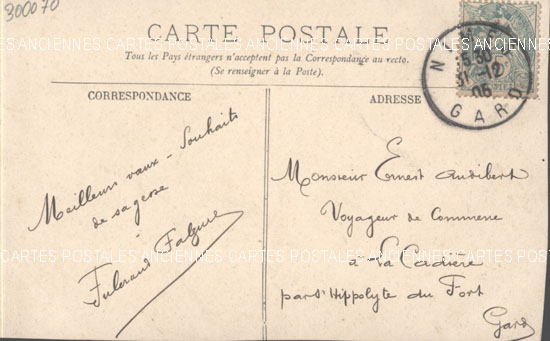 300070
CARTE POSTALE
Tous les Pays étrangers n'acceptent pas la Correspondance au recto.
(Se renseigner à la Poste).
CORRESPONDANCE
Meilleurs vœux - Souhaits
de sagesse
-
Fulcrand Falgure
ADRESSE
Monsieur Ernest Audibert
Voyageur de Commerce
à La Cadière
par St Hippolyte du Fort
Gard
31-12
05
GARD
CARTES POSTALES ANCIENNES CARTES POSTALES ANCIENNES
CARTES POSTALES ANCIENNES CARTES POSTALES ANCIENNES